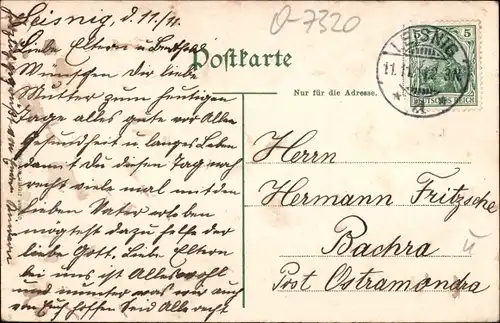 Leisnig, d. 11/11.
O-7320
Liebe Eltern u
Wünschen der liebe
Mutter zum heutigen
Tage alles gute vor Allen
Gesundheit u langes Leben
damit du diesen Tag noch
recht viele mal mit den
lieben Vater erleben
mögtest dazu helfe der
liebe Gott. Liebe Eltern
bei uns ist Alles wohl
und munter was wir auch
von Euch hoffen Seid Alle recht
Postkarte
Nur für die Adresse.
LEISNIG
11.11. 3N
5
DEUTSCHES REICH
Herrn
Hermann Fritzsche
Bachra
Post Ostramondra